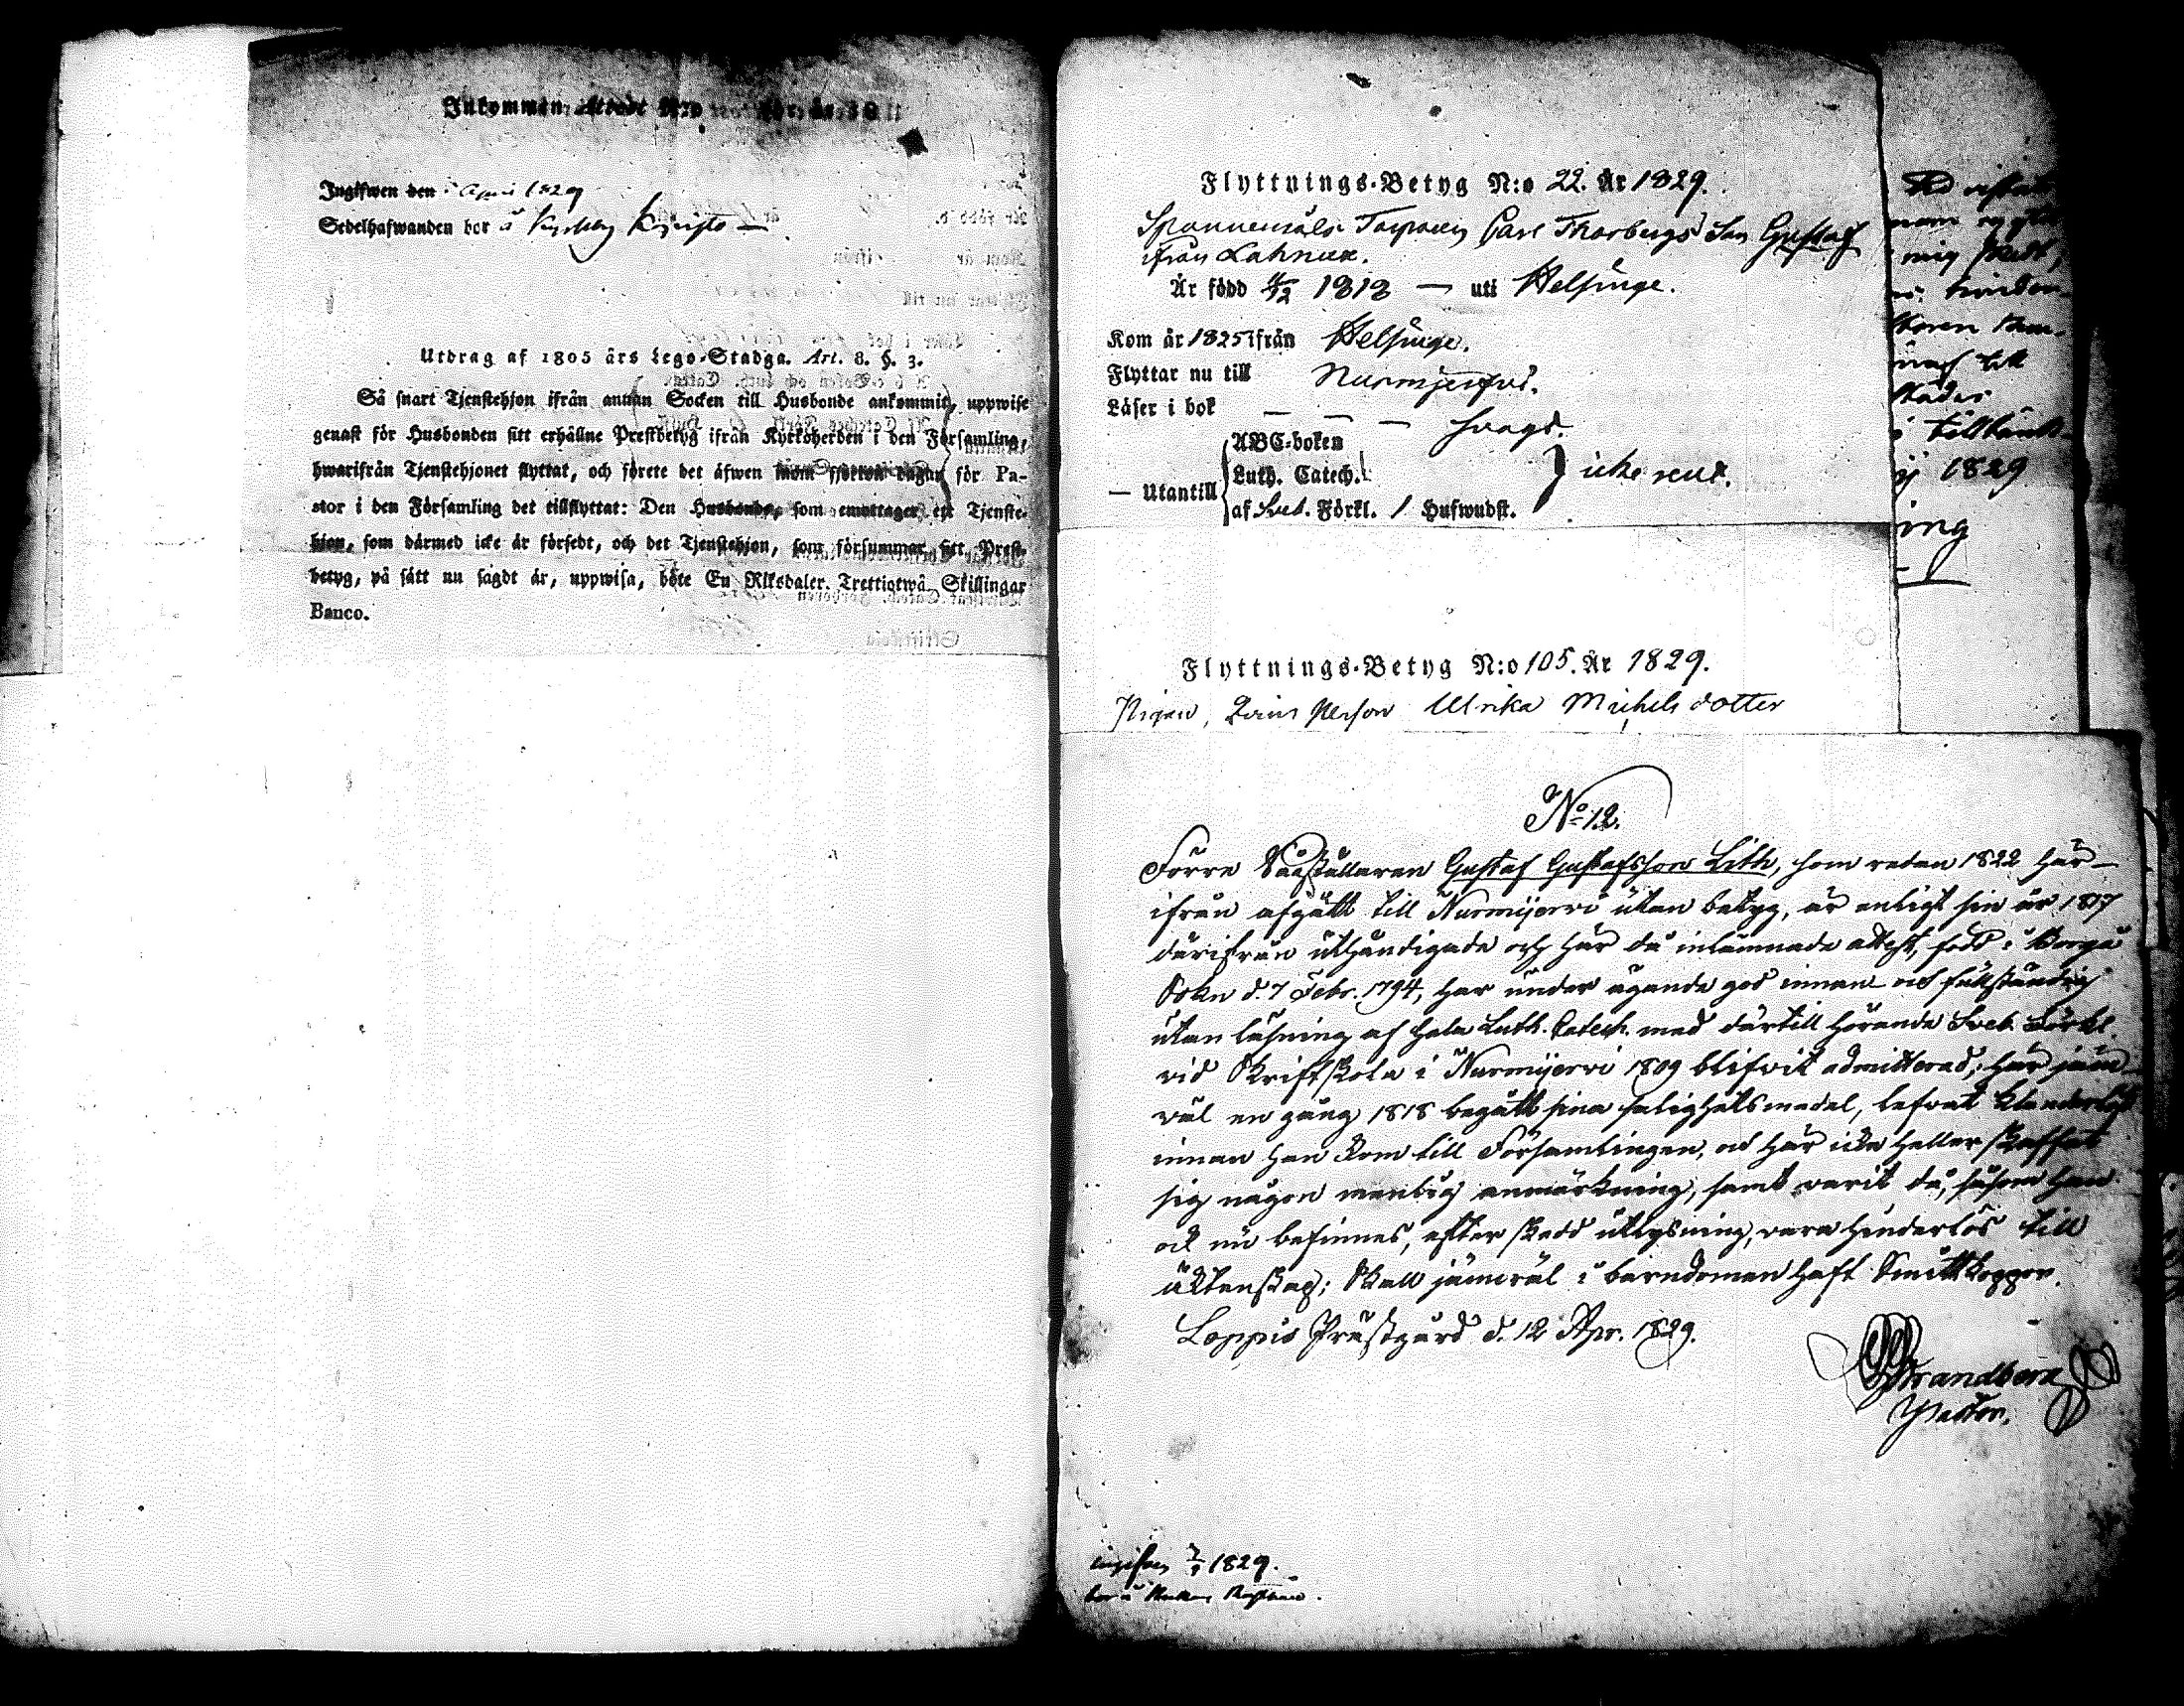 Inkommen Attest N:o för år 18
Ingifwen den April 1829
Sedelhafwanden bor å
Utdrag af 1805 års Lego-Stadga. Art. 8. §. 3.
Så snart Tjenstehjon ifrån annan Socken till Husbonde ankommit, uppwise
genast för Husbonden sitt erhållne Prestbetyg ifrån Kyrkoherden i den Församling,
hwarifrån Tjenstehjonet flyttat, och förete det äfwen inom fjorton dagar för Pa-
stor i den Församling det tillflyttat: Den Husbonde, som emottager ett Tjenste-
hjon, som därmed icke är försedt, och det Tjenstehjon, som försummar sitt Prest-
betyg, på sätt nu sagdt är, uppwisa, böte En Riksdaler Trettiotwå Skillingar
Banco.
Flyttnings-Betyg N:o 22. År 1829.
Torparen Carl Thorbergs Son Gustaf
ifrån Lahnus.
Är född 4/12 1813 — uti Helsinge.
Kom år 1825 ifrån Helsinge.
Flyttar nu till Nurmijerfvi.
Läser i bok — — — svagt.
— Utantill ABC-boken
Luth. Catech. icke rent.
af Sveb. Förkl. 1 Hufwudst.
Flyttnings-Betyg N:o 105. År 1829.
Pigan, Ulrika Michelsdotter
No 12.
Förre Gustaf Gustafsson Lith, som redan 1822 här-
ifrån afgått till Nurmijervi utan betyg, är enligt sin år 1817
därifrån uthändigade och här då inlämnade attest, född i Borgå
Sokn d. 7 Febr. 1794, har under ägande god innan- och fullständig
utan läsning af hela Luth. Catech. med därtill hörande Sveb. Förkl.
vid Skriftskola i Nurmijervi 1809 blifvit admitterad; har jäm-
väl en gång 1818 begått sina salighetsmedel, lefvat klanderlöst
innan han kom till Församlingen, och här icke heller skaffat
sig någon menlig anmärkning, samt varit då, såsom han
ock nu befinnes, efter skedd utlysning, vara hinderlös till
äktenskap; Skall jämväl i barndomen haft Smittkoppor.
Loppis Prästgård d. 12 Apr. 1829.
Strandberg
Pastor.
ingifven 1829.
bor å
1829
ing